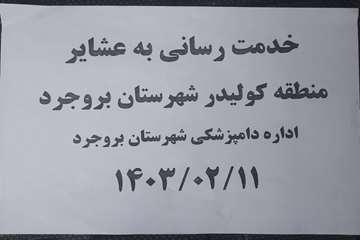 خدمت رسانی به عشایر
منطقه کولیدر شهرستان بروجرد
اداره دامپزشکی شهرستان بروجرد
۱۴۰۳/۰۲/۱۱